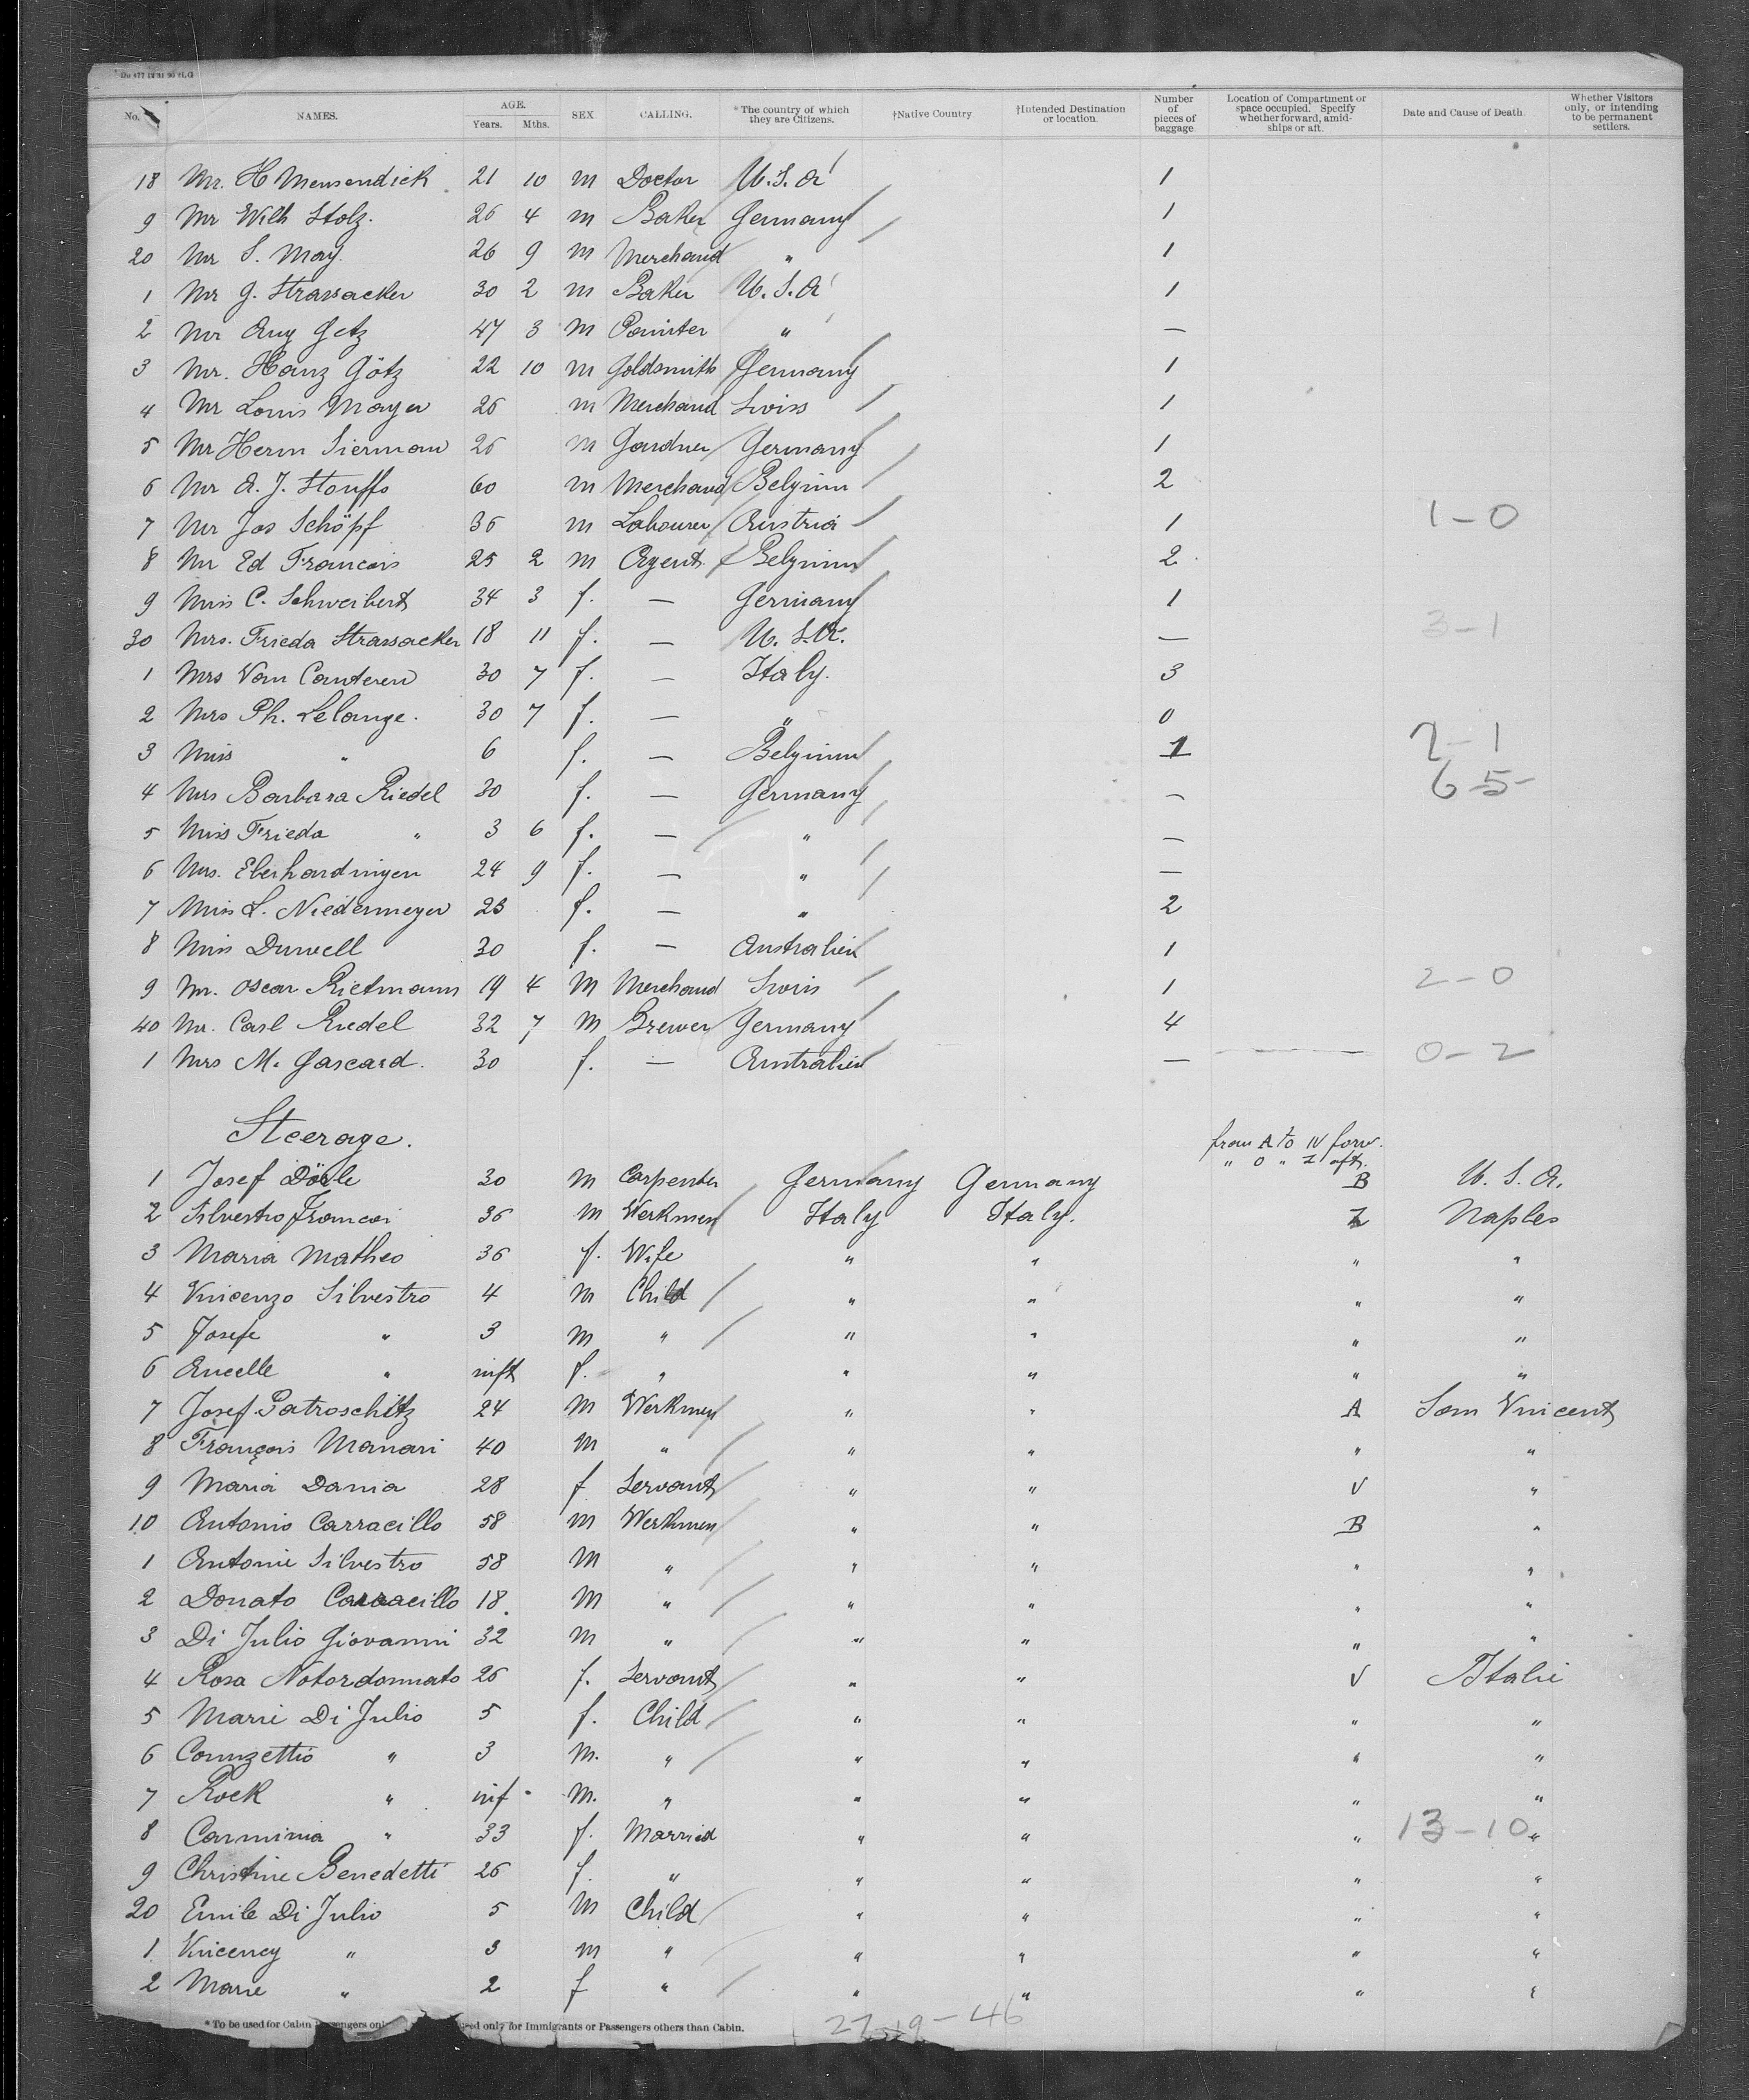 No. NAMES. AGE. Years. Mths. SEX. CALLING. *The country of which they are Citizens. †Native Country †Intended Destination or location. Number of pieces of baggage Location of Compartment or space occupied. Specify whether forward, amidships or aft. Date and Cause of Death. Whether Visitors only, or intending to be permanent settlers.
18 Mr. H Mensendick 21 10 m Doctor U.S.A 1
9 Mr Wilh Stolz. 26 4 m Baker Germany 1
20 Mr S. May. 26 9 m Merchand " 1
1 Mr G. Strassacker 30 2 m Baker U.S.A 1
2 Mr Aug Getz 47 3 m Painter " —
3 Mr. Hanz Götz 22 10 m Goldsmith Germany 1
4 Mr Louis Mayer 26 m Merchand Swiss 1
5 Mr Herm Sierman 26 m Gardner Germany 1
6 Mr A. J. Stouffs 60 m Merchand Belgium 2
7 Mr Jos Schöpf 36 m Labourer Austria 1 1-0
8 Mr Ed Francois 25 2 m Agent Belgium 2
9 Miss C. Schweibert 34 3 f. — Germany 1
30 Mrs. Frieda Strassacker 18 11 f. — U.S.A. — 3-1
1 Mrs Van Canteren 30 7 f. — Italy. 3
2 Mrs Ph. Lelange. 30 7 f. — " 0
3 Miss " 6 f. — Belgium 1 2-1
4 Mrs Barbara Riedel 30 f. — Germany — 6-5-
5 Miss Frieda " 3 6 f. — " —
6 Mrs. Eberhardingen 24 9 f. — " —
7 Miss L. Niedermeyer 23 f. — " 2
8 Miss Durwell 30 f. — Australien 1
9 Mr. Oscar Rietmann 19 4 M Merchand Swiss 1 2-0
40 Mr. Carl Riedel 32 7 M Brewer Germany 4
1 Mrs M. Gascard. 30 f. — Australien — 0-2
Steerage. from A to N forw.
" O " Z aft.
1 Josef Dörle 30 m Carpenter Germany Germany B U.S.A.
2 Silvestro Francoi 36 m Werkmen Italy Italy. Z Naples
3 Maria Matheo 36 f. Wife " " " "
4 Vincenzo Silvestro 4 m Child " " " "
5 Josefe " 3 m " " " " "
6 Ancelle " inft f. " " " " "
7 Josef Patroschitz 24 M Werkmen " " A San Vincent
8 François Manari 40 m " " " " "
9 Maria Dania 28 f Servant " " V "
10 Antonio Carracillo 58 m Werkmen " " B "
1 Antonie Silvestro 58 M " " " " "
2 Donato Carracillo 18. M " " " " "
3 Di Julio Giovanni 32 M " " " " "
4 Rosa Notordonnato 26 f. Servant " " V Italie
5 Marie Di Julio 5 f. Child " " " "
6 Counzettio " 3 M. " " " " "
7 Rock " inf M. " " " " "
8 Carminia " 33 f. Married " " " 13-10 "
9 Christine Benedetti 26 f. " " " " "
20 Emile Di Julio 5 M Child " " " "
1 Vincency " 3 m " " " " "
2 Marie " 2 f " " " " "
*To be used for Cabin Passengers only used only for Immigrants or Passengers others than Cabin. 27-19-46